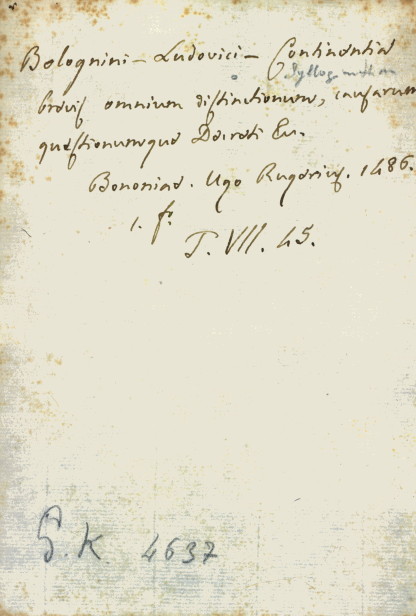 Bolognini – Ludovici – Continentia
Syllogianthon
brevis omnium distinctionum, causarum
quaestionumque Decreti Eu.
Bononiae. Ugo Rugerius. 1486.
1. f.
T. VII. 45.
G. K. 4637